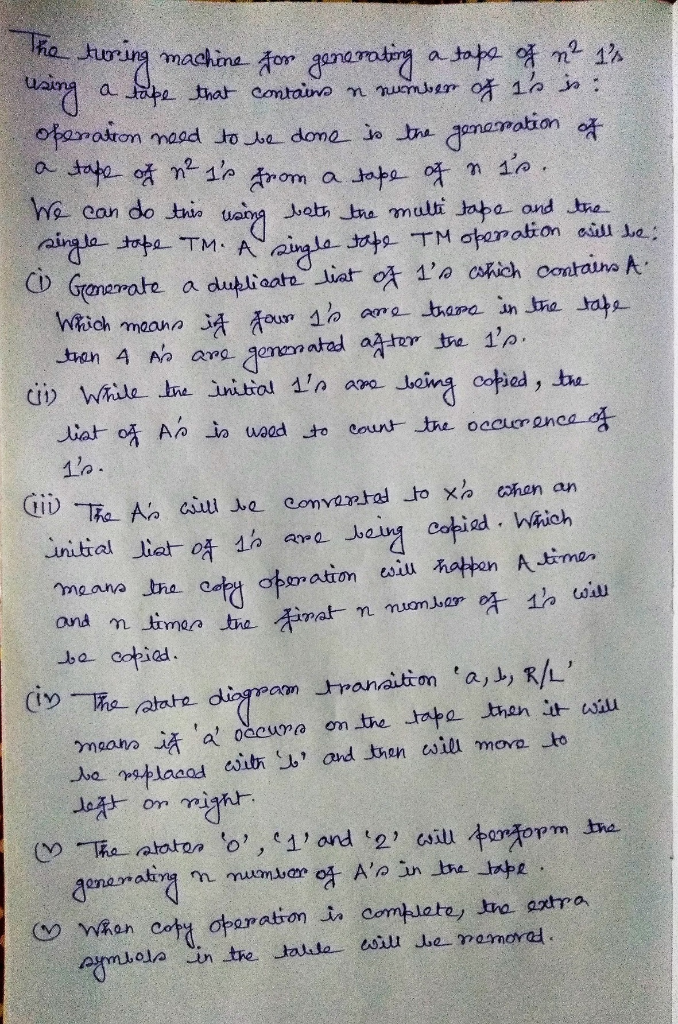 The turing machine for generating a tape of n² 1's
using a tape that contains n number of 1's is :
operation need to be done is the generation of
a tape of n² 1's from a tape of n 1's.
We can do this using both the multi tape and the
single tape TM. A single tape TM operation will be:
(i) Generate a duplicate list of 1's which contains A.
Which means if four 1's are there in the tape
then 4 A's are generated after the 1's.
(ii) While the initial 1's are being copied, the
list of A's is used to count the occurence of
1's.
(iii) The A's will be converted to x's when an
initial list of 1's are being copied. Which
means the copy operation will happen A times
and n times the first n number of 1's will
be copied.
(iv) The state diagram transition 'a, b, R/L'
means if 'a' occurs on the tape then it will
be replaced with 'b' and then will move to
left or right.
(v) The states '0', '1' and '2' will perform the
generating n number of A's in the tape.
(v) When copy operation is complete, the extra
symbols in the table will be removed.